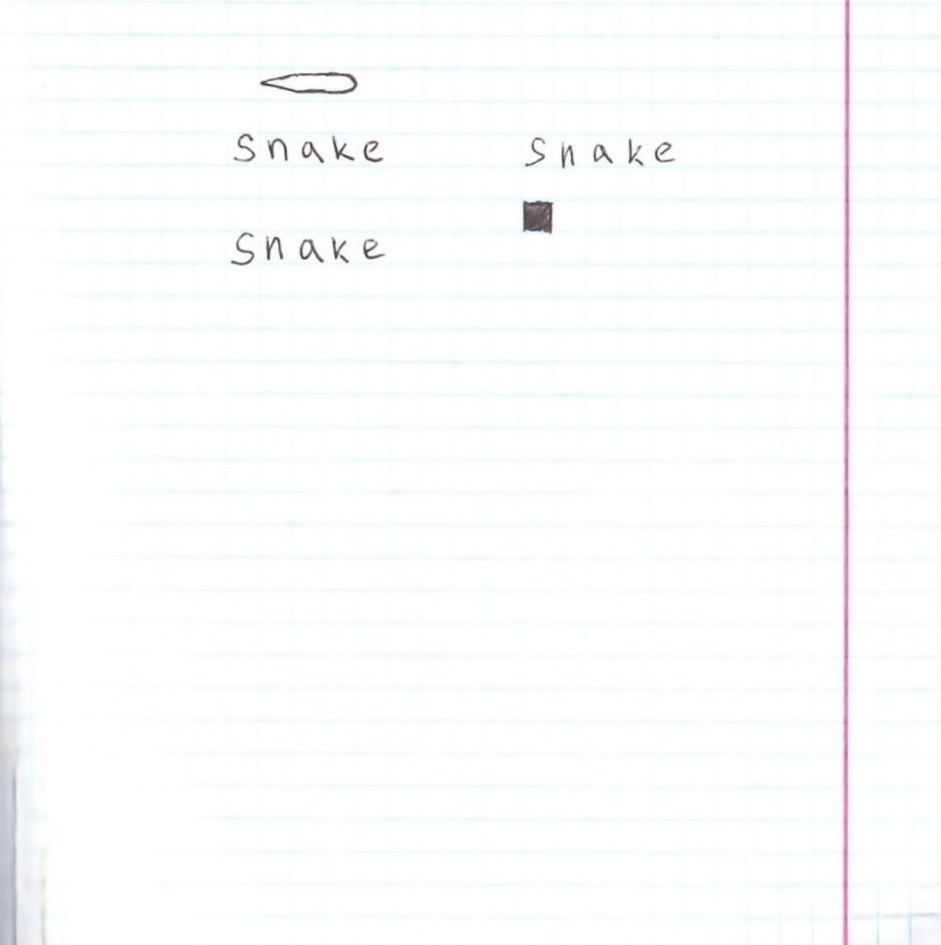 Snake
Snake
Snake